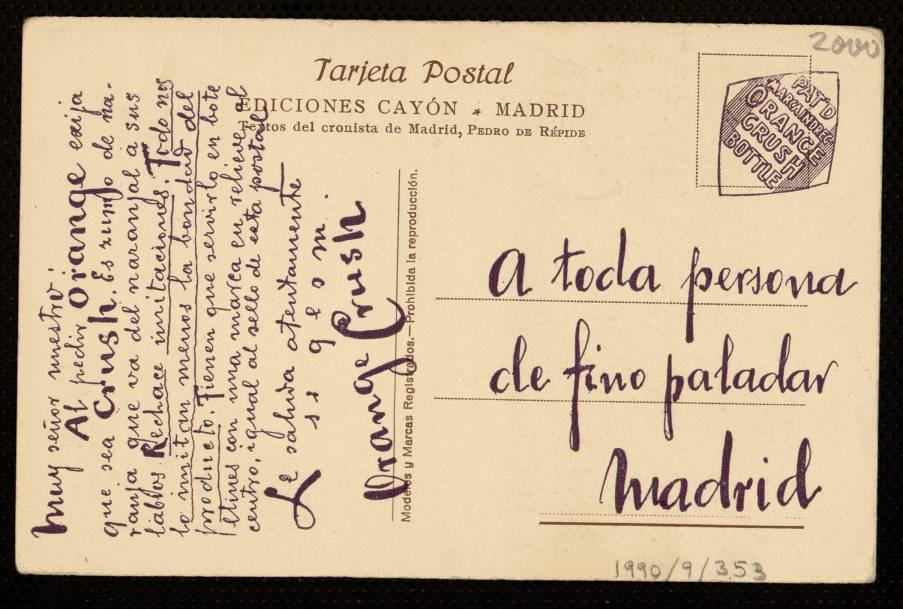 2000
Tarjeta Postal
EDICIONES CAYÓN * MADRID
Textos del cronista de Madrid, PEDRO DE RÉPIDE
PAT'D
MARCA INDREG
ORANGE
CRUSH
BOTTLE
Muy señor nuestro
Al pedir Orange exija
que sea Crush. Es zumo de na-
ranja que va del naranjal á sus
labios. Rechace imitaciones. Todo nos
lo imitan menos la bondad del
producto. Tienen que servirlo en bote
llines con una marca en relieve al
centro, igual al sello de esta postal
Le saluda atentamente
s s q e s m.
Orange Crush.
Modelos y Marcas Registrados.—Prohibida la reproducción.
A toda persona
de fino paladar
Madrid
1990/9/353